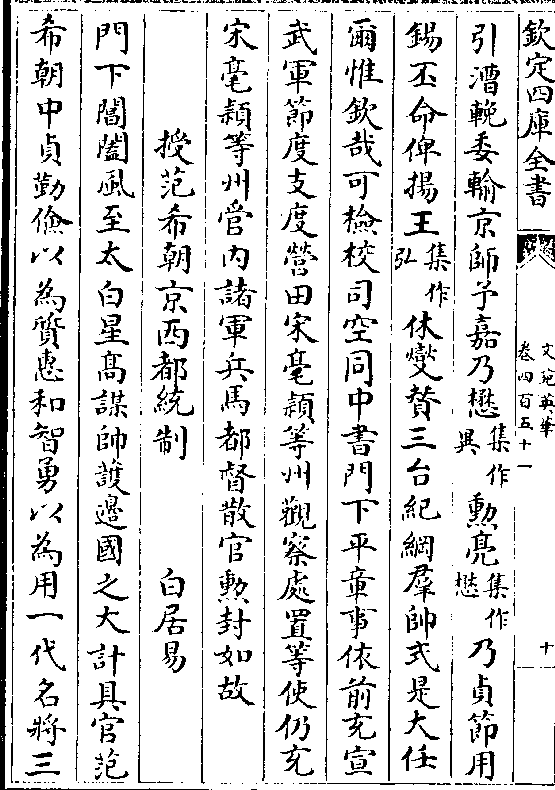 欽定四庫全書
文苑英華
卷四百五十一
十
引漕輓委輸京師予嘉乃懋集作異勲亮集作懋乃貞節用
錫丕命俾揚王集作弘休爕賛三台紀綱羣帥式是大任
爾惟欽哉可檢校司空同中書門下平章事依前充宣
武軍節度支度營田宋亳潁等州觀察處置等使仍充
宋亳潁等州管内諸軍兵馬都督散官勲封如故
授范希朝京西都統制 白居易
門下閶闔風至太白星髙謀帥護邊國之大計具官范
希朝中貞勤儉以為質惠和智勇以為用一代名將三